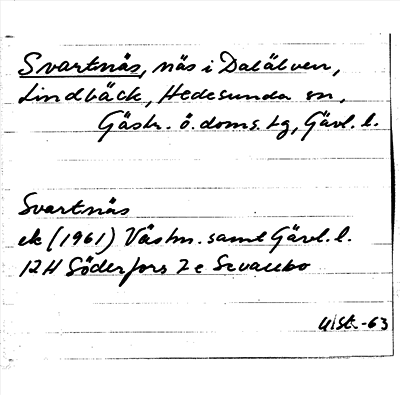 Svartnäs, näs i Dalälven,
Lindbäck, Hedesunda sn,
Gästr. ö. doms. tg, Gävl. l.
Svartnäs
ek (1961) Västm. samt Gävl. l.
12H Söderfors 7e
-63